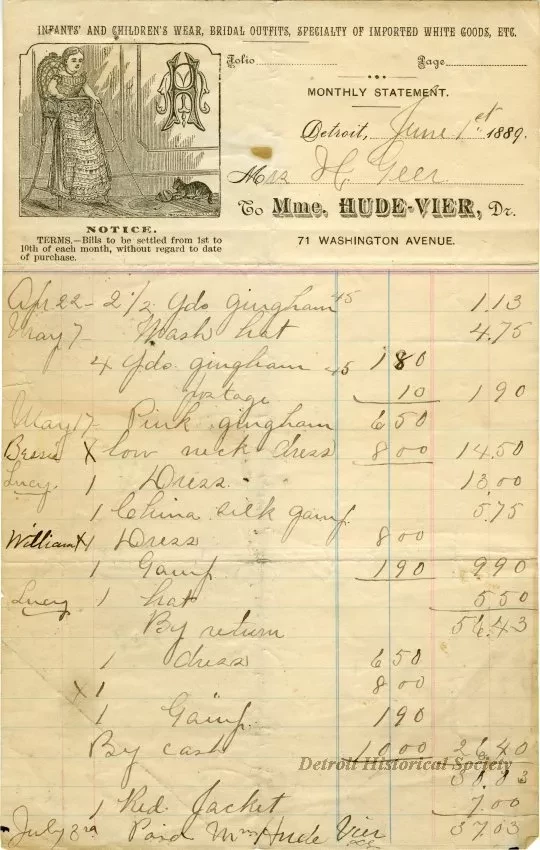 INFANTS' AND CHILDREN'S WEAR, BRIDAL OUTFITS, SPECIALTY OF IMPORTED WHITE GOODS, ETC.
Folio Page
MONTHLY STATEMENT.
Detroit, June 1st 1889.
Mrs H Geer
To Mme. HUDE-VIER, Dr.
71 WASHINGTON AVENUE.
NOTICE.
TERMS.—Bills to be settled from 1st to
10th of each month, without regard to date
of purchase.
Apr 22 - 2 1/2 Yds gingham 45 1.13
May 7 - Wash hat 4.75
4 Yds. gingham 45 1 80
postage 10 1 90
May 17 - Pink gingham 6 50
Bessie X low neck dress 8 00 14.50
Lucy. 1 Dress. 13.00
1 China silk gamp. 5.75
William X1 Dress 8 00
1 Gamp 1 90 9 90
Lucy 1 hat 5 50
By return 56.43
1 dress 6 50
X 1 8 00
1 Gamp. 1 90
By cash 10 00 26.40
Detroit Historical Society
30.03
1 Red Jacket 7.00
July 3rd Paid Mme Hude Vier 37.03